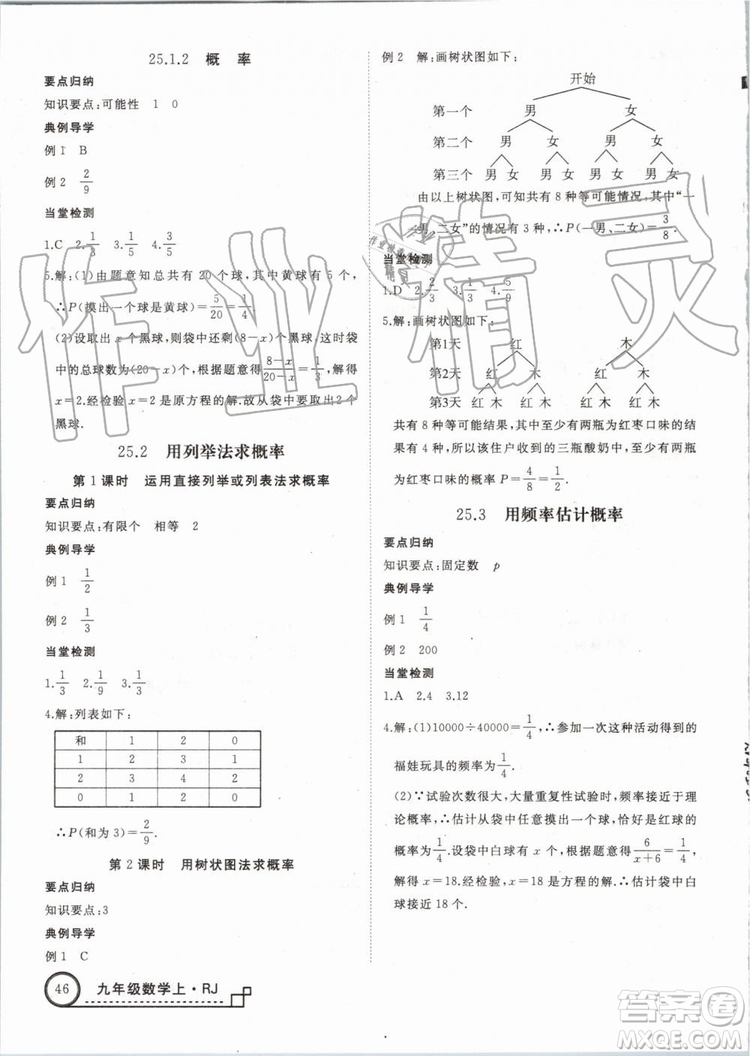 25.1.2 概 率
要点归纳
知识要点:可能性 1 0
典例导学
例1 B
例2 2/9
当堂检测
1.C 2.1/3 3.1/5
5.解:(1)由题意知总共有20个球,其中黄球有5个,
∴P(摸出一个球是黄球)=5/20=1/4.
(2)设取出x个黑球,则袋中还剩(8-x)个黑球,这时袋
中的总球数为(20-x)个.根据题意得(8-x)/(20-x)=1/3.解得
x=2.经检验x=2是原方程的解.故从袋中要取出2个
黑球.
25.2 用列举法求概率
第1课时 运用直接列举或列表法求概率
要点归纳
知识要点:有限个 相等 2
典例导学
例1 1/2
例2 1/3
当堂检测
1.1/3 2.1/9 3.1/3
4.解:列表如下:
和 1 2 0
1 2 3 1
2 3 4 2
0 1 2 0
∴P(和为3)=2/9.
第2课时 用树状图法求概率
要点归纳
知识要点:3
典例导学
例1 C
46 九年级数学上·RJ
例2 解:画树状图如下:
开始
第一个 男 女
第二个 男 女 男 女
第三个 男 女 男 女 男 女 男 女
由以上树状图,可知共有8种等可能情况,其中“一
男、二女”的情况有3种,∴P(一男、二女)=3/8
当堂检测
1.D 2.2/3
5.解:画树状图如下:
第1天 红 木
第2天 红 木 红 木
第3天 红 木 红 木 红 木 红 木
共有8种等可能结果,其中至少有两瓶为红枣口味的结
果有4种,所以该住户收到的三瓶酸奶中,至少有两瓶为
红枣口味的概率P=4/8=1/2.
25.3 用频率估计概率
要点归纳
知识要点:固定数 p
典例导学
例1 1/4
例2 200
当堂检测
1.A 2.4 3.12
4.解:(1)10000÷40000=1/4,∴参加一次这种活动得到的
福娃玩具的频率为1/4.
(2)∵试验次数很大,大量重复性试验时,频率接近于理
论概率,∴估计从袋中任意摸出一个球,恰好是红球的
概率为1/4.设袋中白球有x个,根据题意得6/(x+6)=1/4.
解得x=18.经检验,x=18是方程的解.∴估计袋中白
球接近18个.
作业精灵
答案圈
MXQE.COM